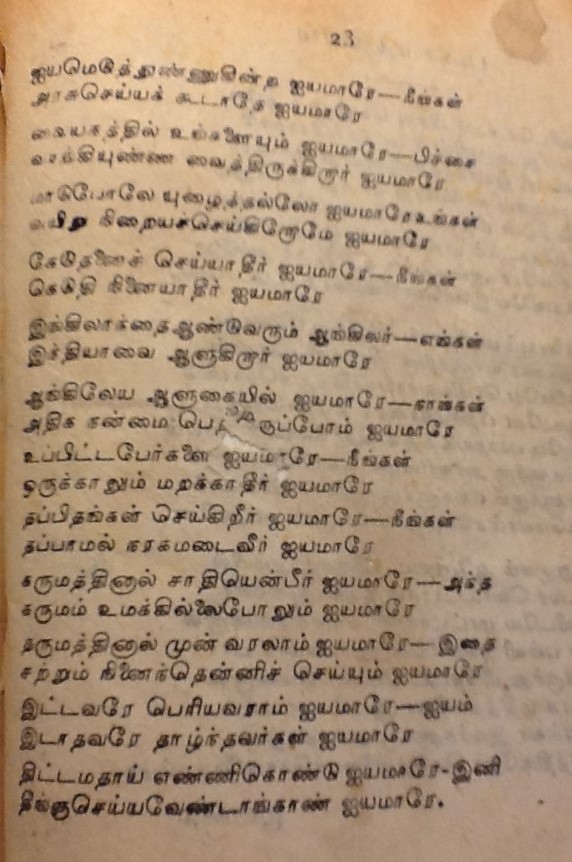 23
ஐயமெடுத்துண்ணுகின்ற ஐயமாரே—நீங்கள்
அரசுசெய்யக் கூடாதே ஐயமாரே
வையகத்தில் உங்களையும் ஐயமாரே—பிச்சை
வாங்கியுண்ண வைத்திருக்கிறார் ஐயமாரே
மாடுபோலே யுழைத்தல்லோ ஐயமாரேஉங்கள்
வயிறு நிறையச்செய்கிறோமே ஐயமாரே
கேடுதனைச் செய்யாதீர் ஐயமாரே—நீங்கள்
கெடுதி நினையாதீர் ஐயமாரே
இங்கிலாந்தைஆண்டுவரும் ஆங்கிலர்—எங்கள்
இந்தியாவை ஆளுகிறார் ஐயமாரே
ஆங்கிலேய ஆளுகையில் ஐயமாரே—நாங்கள்
அதிக நன்மை ருப்போம் ஐயமாரே
உப்பிட்டபேர்களை ஐயமாரே—நீங்கள்
ஒருக்காலும் மறக்காதீர் ஐயமாரே
தப்பிதங்கள் செய்கிறீர் ஐயமாரே—நீங்கள்
தப்பாமல் நரகமடைவீர் ஐயமாரே
கருமத்தினால் சாதியென்பீர் ஐயமாரே—அந்த
கருமம் உமக்கில்லைபோலும் ஐயமாரே
தருமத்தினால் முன் வரலாம் ஐயமாரே—இதை
சற்றும் நினைந்தெண்ணிச் செய்யும் ஐயமாரே
இட்டவரே பெரியவராம் ஐயமாரே—ஐயம்
இடாதவரே தாழ்ந்தவர்கள் ஐயமாரே
திட்டமதாய் எண்ணிகொண்டு ஐயமாரே-இனி
தீங்குசெய்யவேண்டாங்காண் ஐயமாரே.